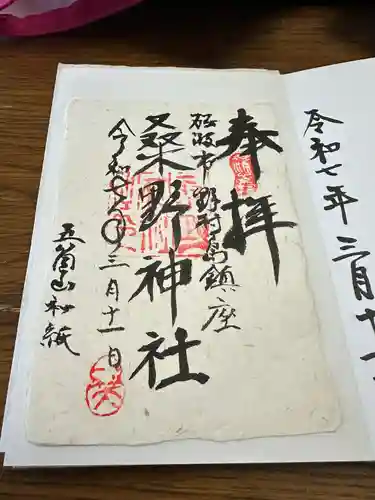 奉拝
砺波市野村島鎮座
桑野神社
令和七年三月十一日
五箇山和紙
令和七年三月十一